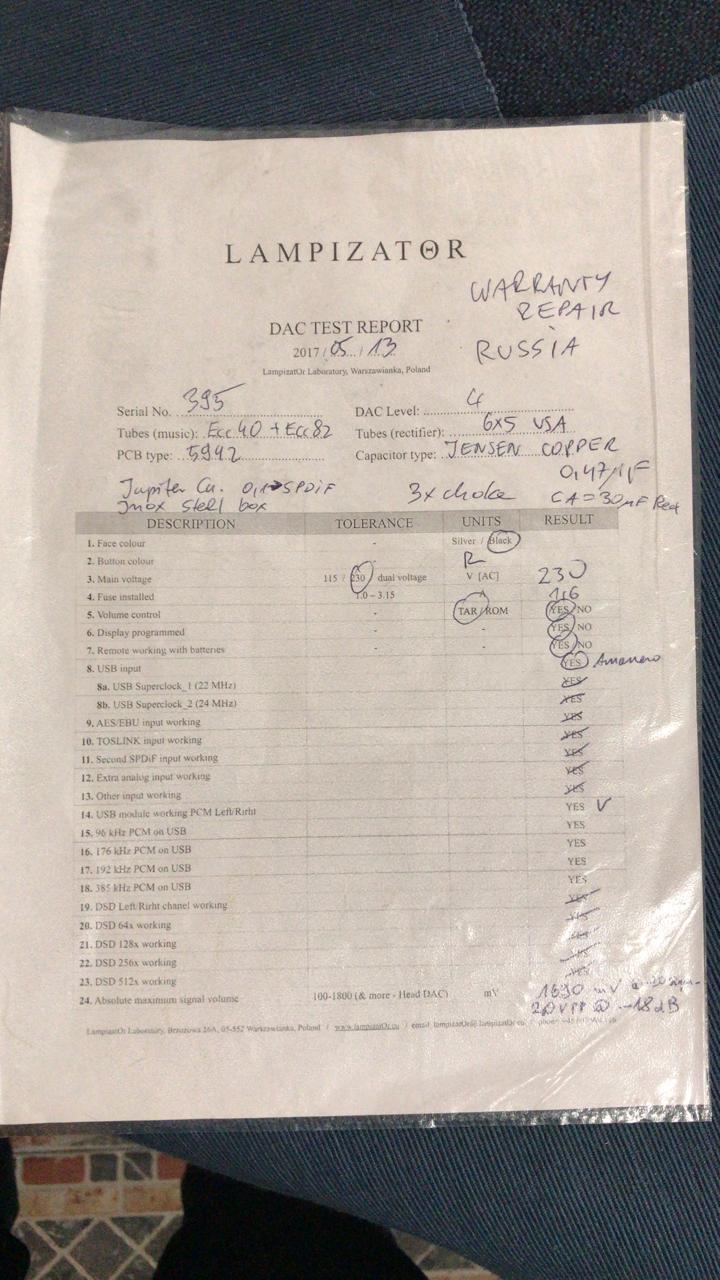 LAMPIZATΘR
WARRANTY
REPAIR
RUSSIA
DAC TEST REPORT
2017 / 05 / 13
LampizatOr Laboratory, Warszawianka, Poland
Serial No. 395 DAC Level: 4
Tubes (music): Ecc 40 + Ecc 82 Tubes (rectifier): 6x5 USA
PCB type: 5942 Capacitor type: JENSEN COPPER
0,47µF
Jupiter Ca. 0,1 → SPDiF 3x choke CA = 30µF
Inox steel box
DESCRIPTION TOLERANCE UNITS RESULT
1. Face colour - Silver / Black
2. Button colour R
3. Main voltage 115 / 230 / dual voltage V [AC] 230
4. Fuse installed 1.0 – 3.15 A 1,6
5. Volume control - TAR / ROM YES / NO
6. Display programmed - YES / NO
7. Remote working with batteries - - YES / NO
8. USB input YES Amanero
8a. USB Superclock_1 (22 MHz) YES
8b. USB Superclock_2 (24 MHz) YES
9. AES/EBU input working YES
10. TOSLINK input working YES
11. Second SPDiF input working YES
12. Extra analog input working YES
13. Other input working YES
14. USB module working PCM Left/Rirht YES V
15. 96 kHz PCM on USB YES
16. 176 kHz PCM on USB YES
17. 192 kHz PCM on USB YES
18. 385 kHz PCM on USB YES
19. DSD Left/Rirht chanel working YES
20. DSD 64x working YES
21. DSD 128x working YES
22. DSD 256x working YES
23. DSD 512x working YES
24. Absolute maximum signal volume 100-1800 (& more - Head DAC) mV 1690 mV @
@ -18 dB
LampizatOr Laboratory, Brzozowa 26A, 05-552 Warszawianka, Poland / www.lampizatOr.eu / email: lampizatOr@lampizatOr.eu